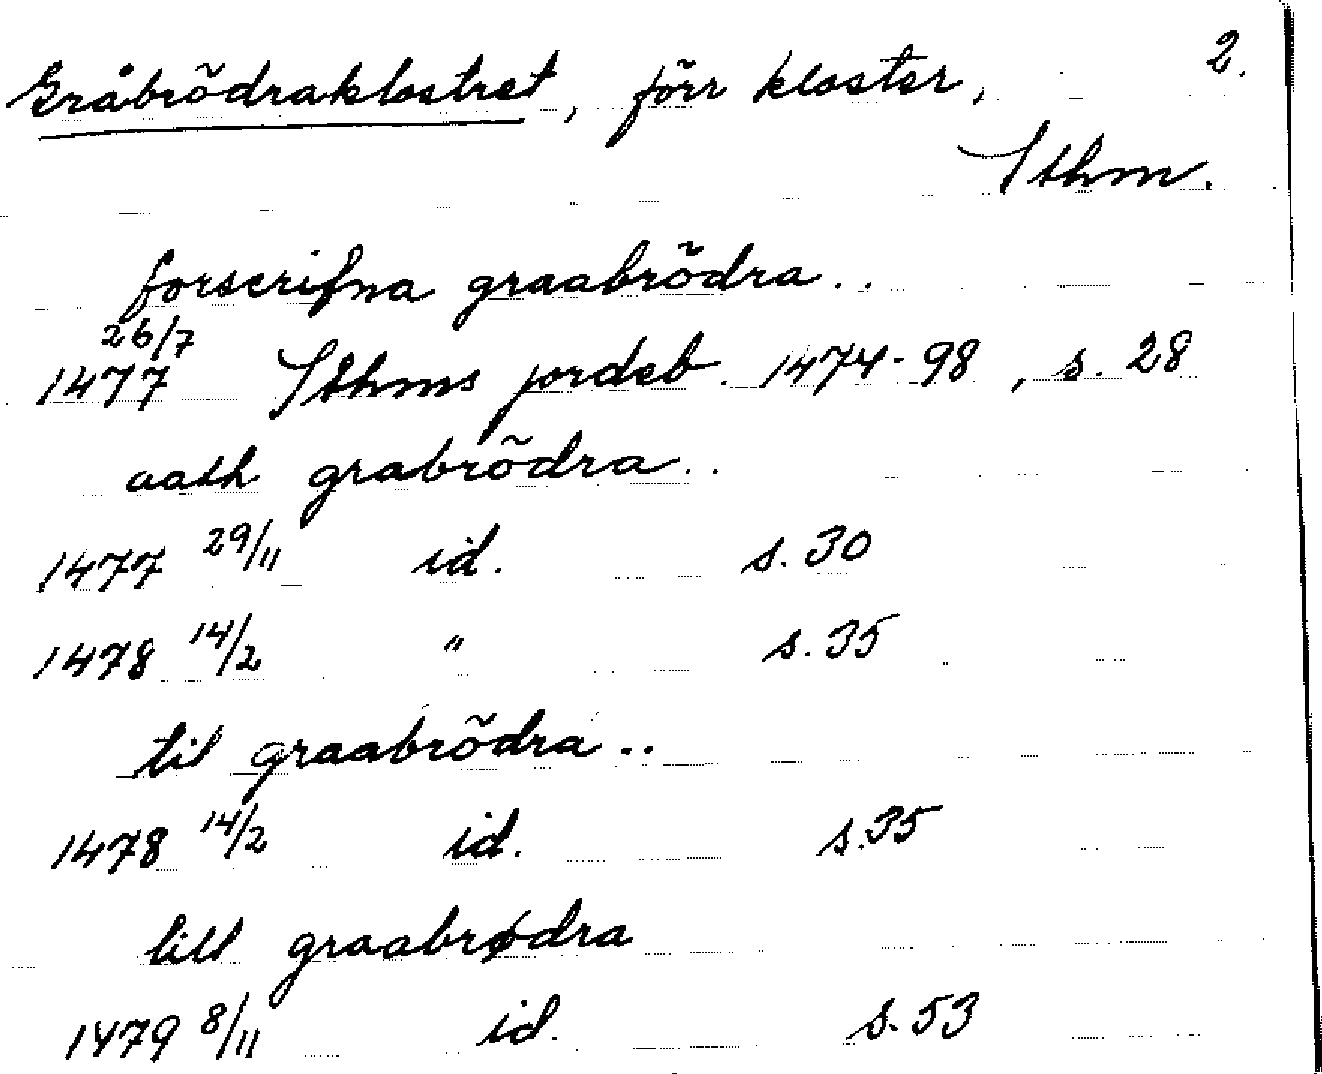 2.
Gråbrödraklostret, förr kloster,
Sthm.
forscrifna graabrödra..
26/7
1477 Sthms jordeb. 1474-98, s. 28
aath grabrödra..
1477 29/11 id. s. 30
1478 14/2 " s. 35
til graabrödra..
1478 14/2 id. s. 35
till graabrødra
1479 8/11 id. s. 53